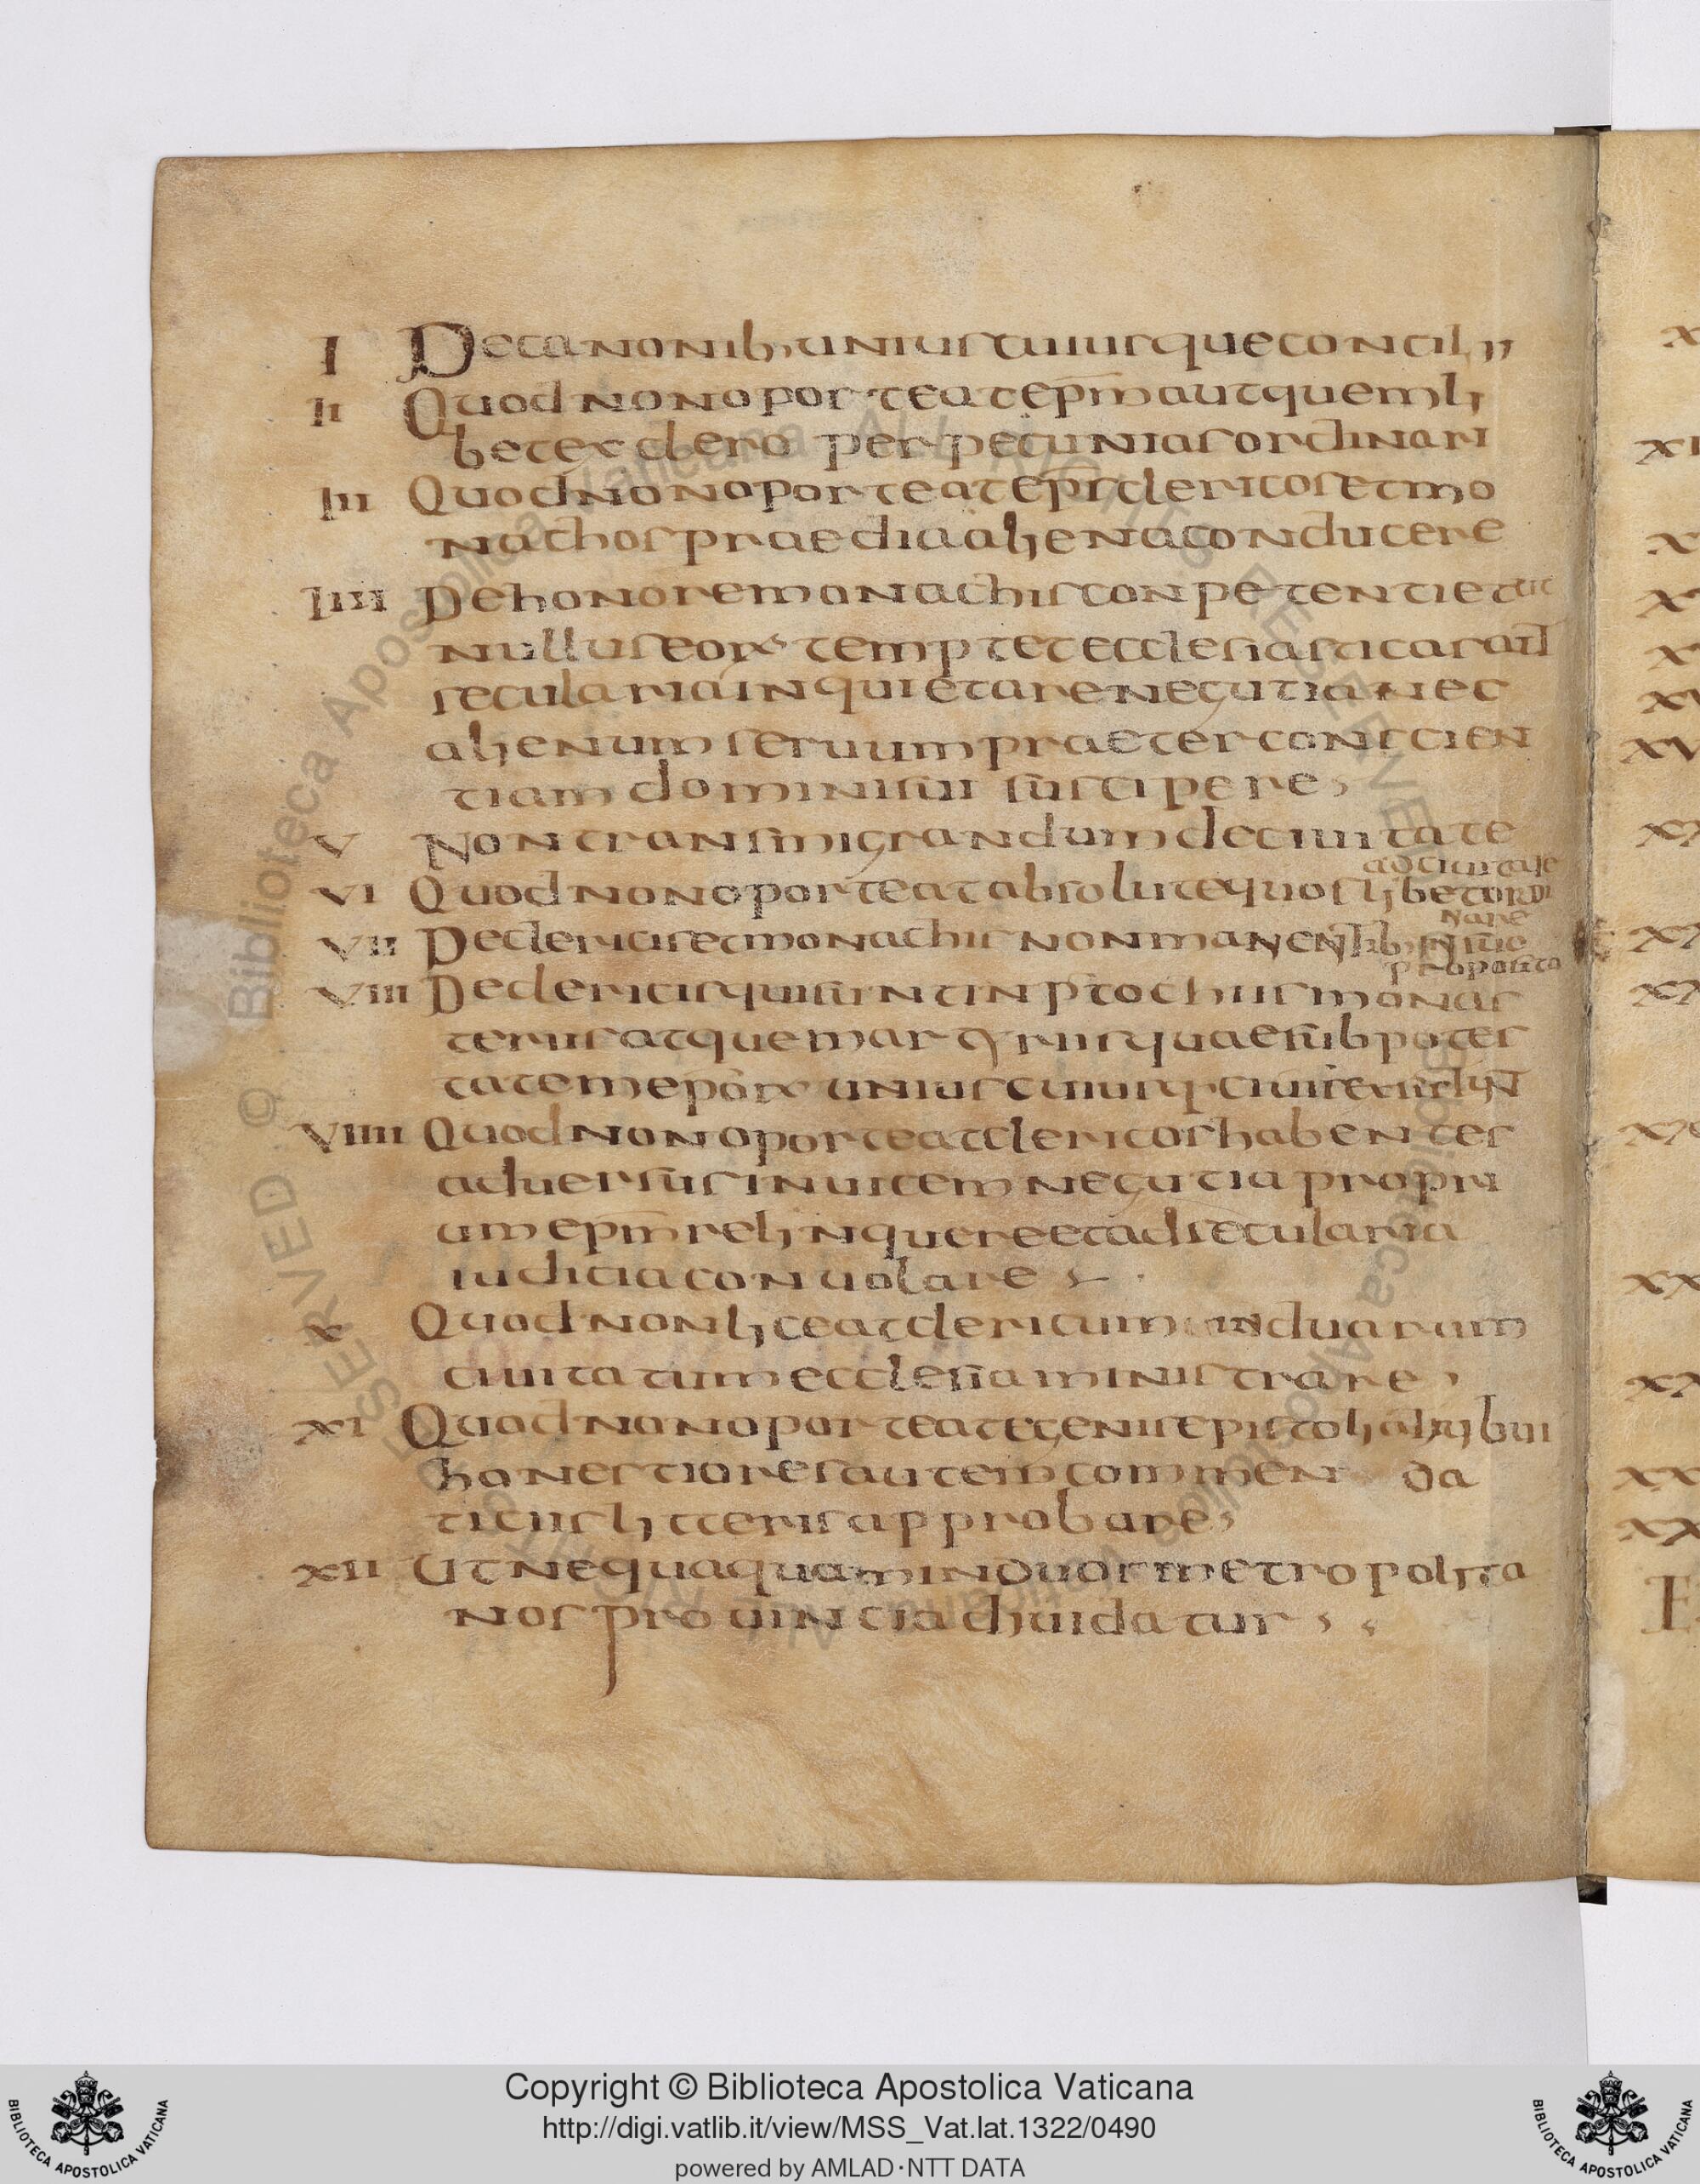 I Decanonib; uniuscuiusque concilii
II Quod non oporteat epm̄ aut quemli
bet ex clero per pecunias ordinari
III Quod non oporteat epīs clericos et mo
nachos praedia aliena conducere
IIII De honore monachis conpetenti et ut
nullus eorx temptet ecclesiasticas aut
secularia inquietare negutia nec
alienum seruum praeter conscien
tiam domini sui suscipere,
V Non transmigrandum de ciuitate
ad ciuitate
VI Quod non oporteat absolute quoslibet ordi
nare
VII De clericis et monachis non manentib; in suo
proposito
VIII De clericis qui sunt in ptochiis monas
teriis atque martyriis quae sub potes
tatem epōrx uniuscuiusq; ciuit exsistunt
VIIII Quod non oporteat clericos habentes
aduersus inuicem negutia propri
um epm̄ relinquere et ad secularia
iudicia conuolare
X Quod non liceat clericum in duarum
ciuitatum ecclesia ministrare,
XI Quod non oporteat egenis epistoli alii tribui
honestiores autem commen da
ticiis litteris approbare,
XII Ut nequaquam in duos metropolita
nos prouincia diuidatur,
Copyright © Biblioteca Apostolica Vaticana
http://digi.vatlib.it/view/MSS_Vat.lat.1322/0490
powered by AMLAD·NTT DATA
BIBLIOTECA APOSTOLICA VATICANA
BIBLIOTECA APOSTOLICA VATICANA